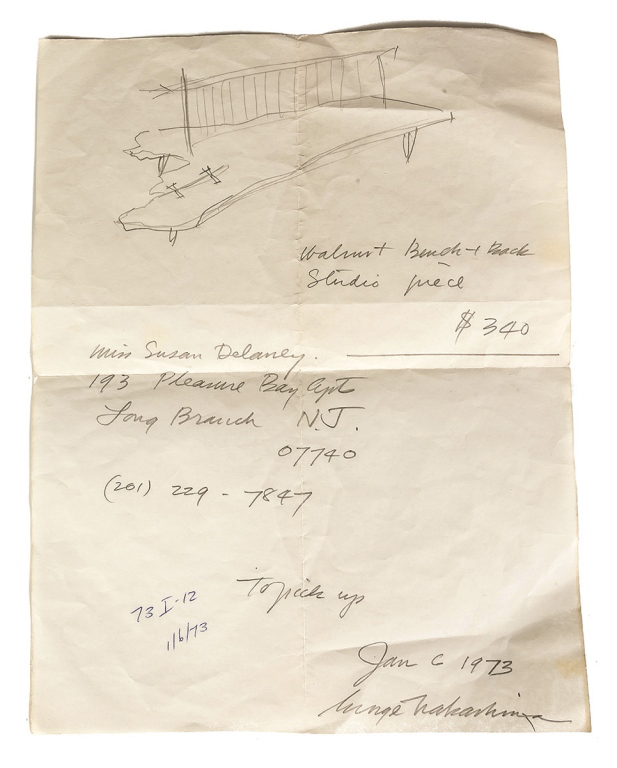 Walnut Bench + Back
Studio piece
$ 340
Miss Susan Delaney.
193 Pleasure Bay Apt
Long Branch N.J.
07740
(201) 229 - 7847
To pick up
73 I-12
1/6/73
Jan 6 1973
George Nakashima